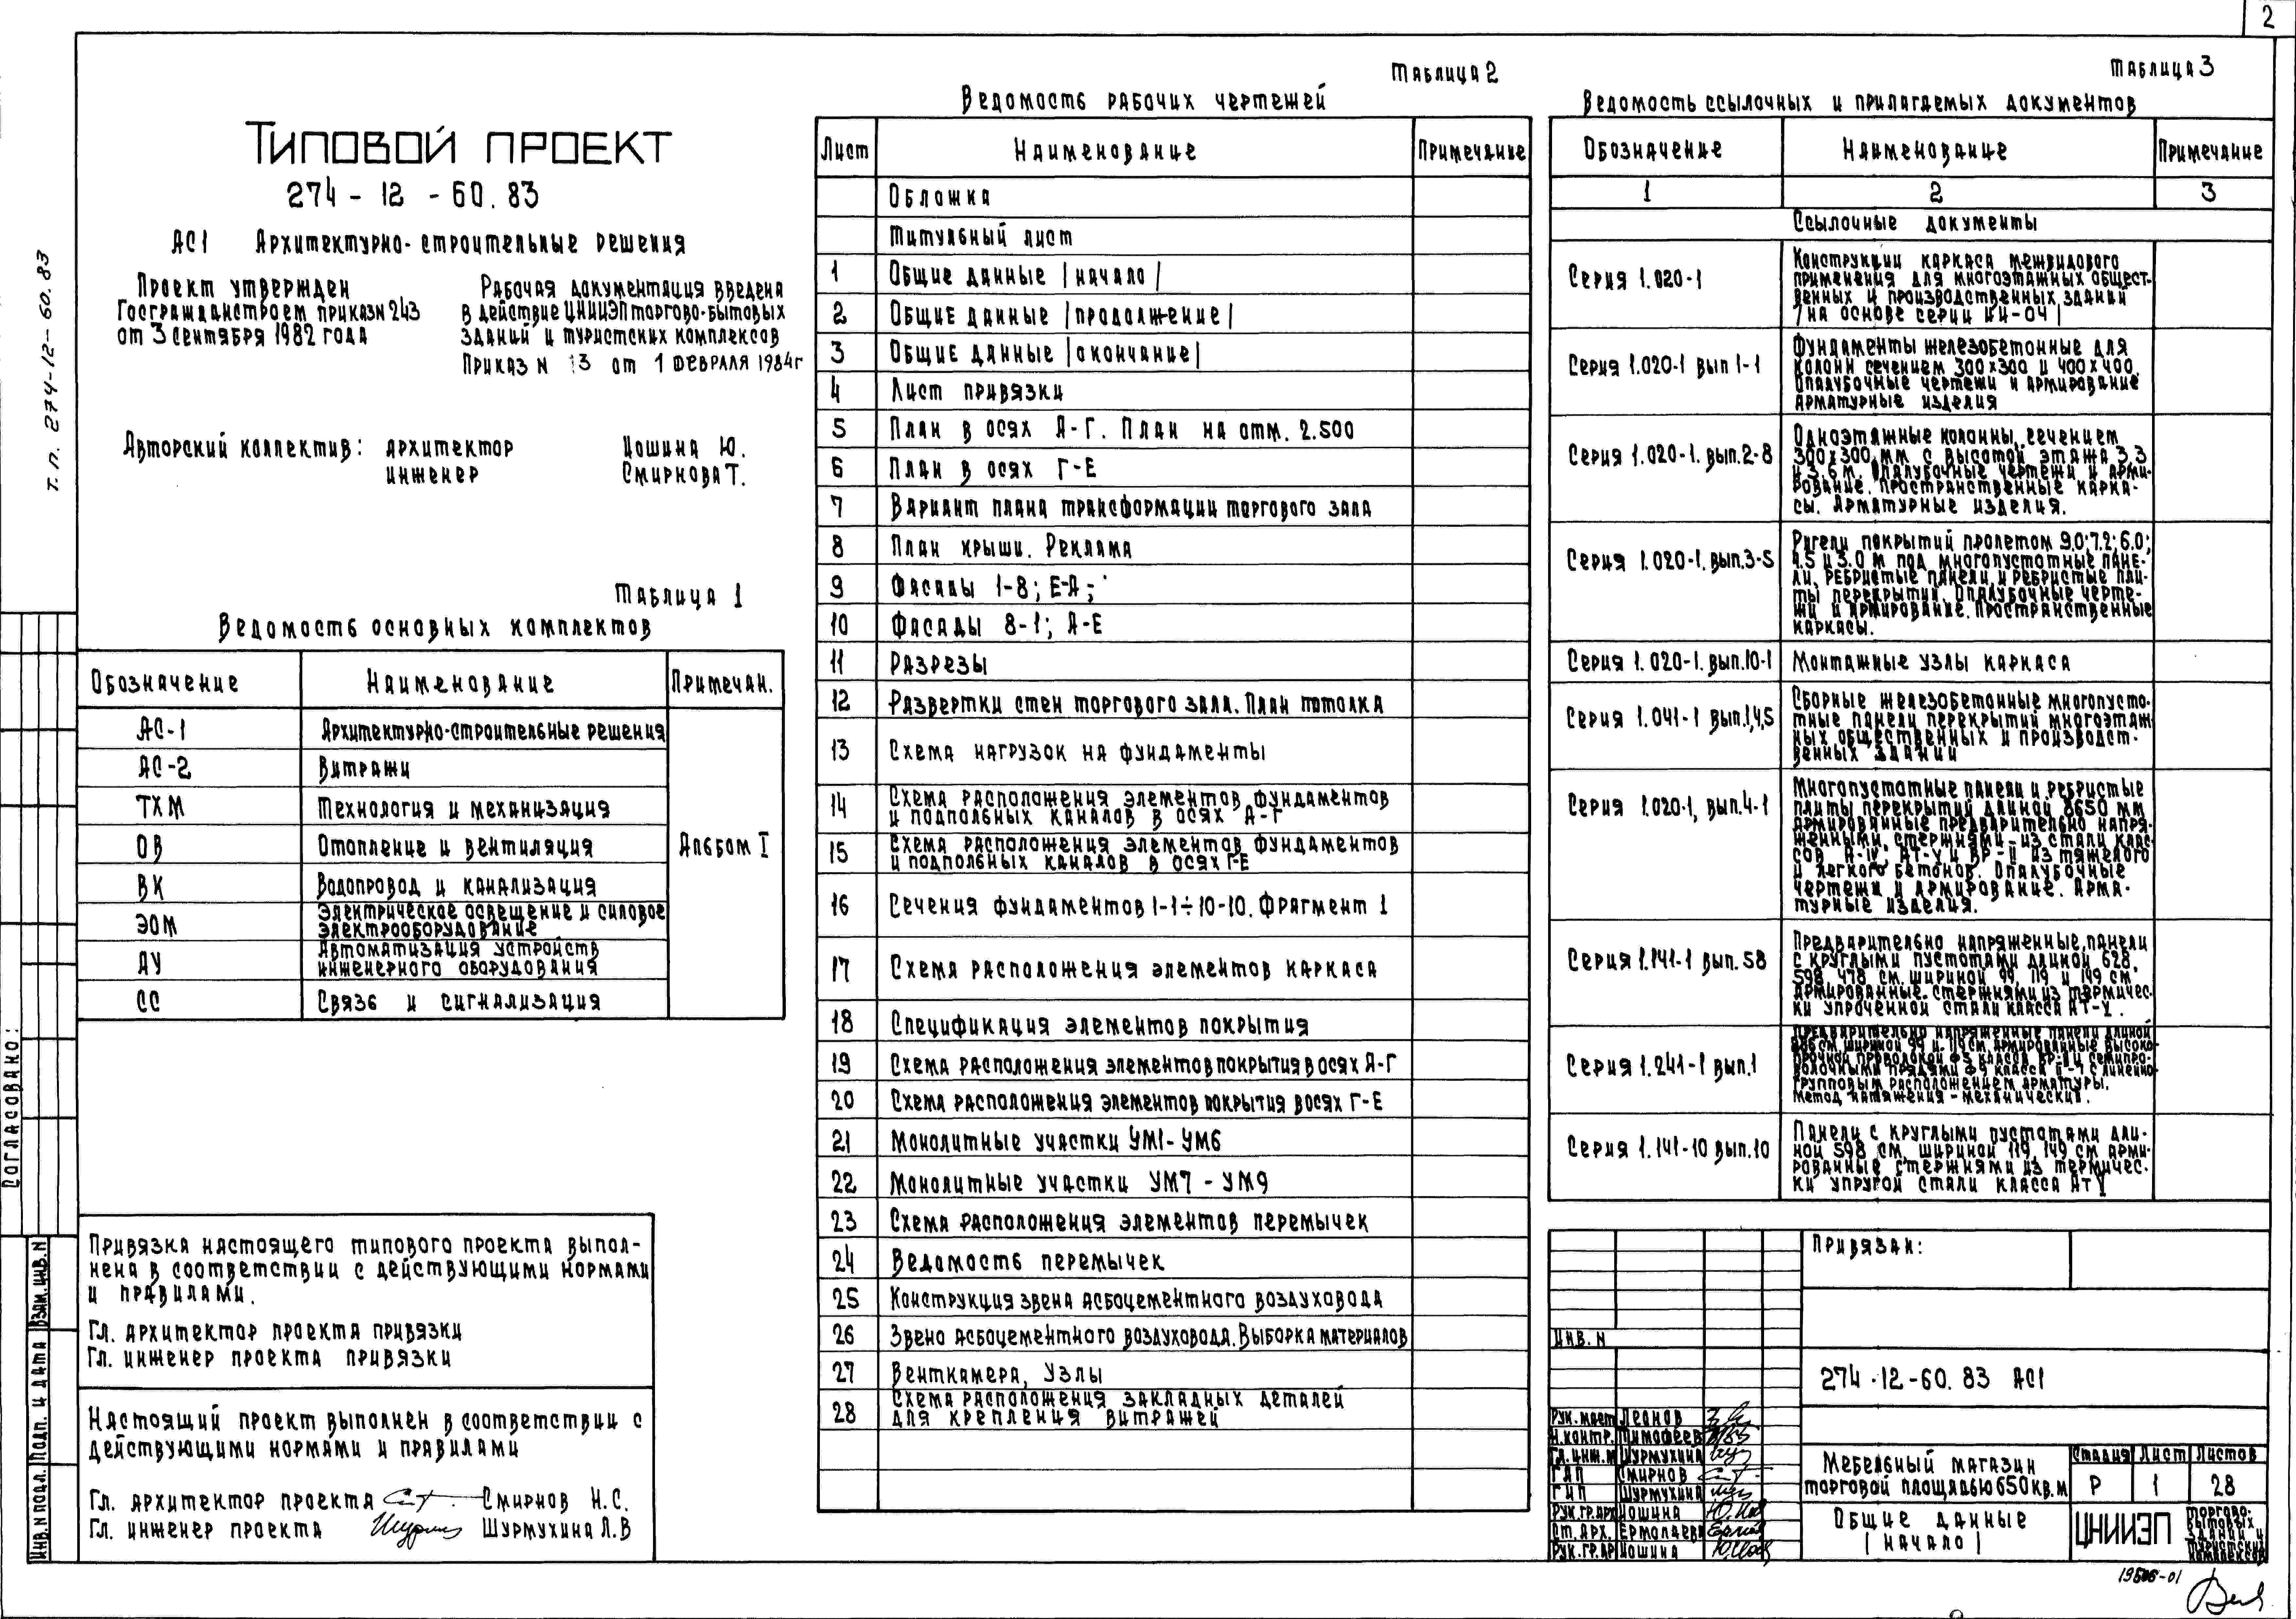 2
Т.П. 274-12-60.83
Типовой проект
274-12-60.83
АС1 Архитектурно-строительные решения
Проект утвержден
Госгражданстроем приказ N 243
от 3 сентября 1982 года
Рабочая документация введена
в действие ЦНИИЭП торгово-бытовых
зданий и туристских комплексов
Приказ N 13 от 1 февраля 1984г
Авторский коллектив: архитектор Иошина Ю.
инженер Смирнова Т.
Таблица 1
Ведомость основных комплектов
Обозначение Наименование Примечан.
АС-1 Архитектурно-строительные решения
АС-2 Витражи
ТХМ Технология и механизация
ОВ Отопление и вентиляция
Альбом I
ВК Водопровод и канализация
ЭОМ Электрическое освещение и силовое
электрооборудование
АУ Автоматизация устройств
инженерного оборудования
СС Связь и сигнализация
Согласовано:
Привязка настоящего типового проекта выпол-
нена в соответствии с действующими нормами
и правилами.
Гл. архитектор проекта привязки
Гл. инженер проекта привязки
Настоящий проект выполнен в соответствии с
действующими нормами и правилами
Гл. архитектор проекта Смирнов Н.С.
Гл. инженер проекта Шурмухина Л.В
Инв.N подл. Подп. и дата Взам.инв.N
Таблица 2
Ведомость рабочих чертежей
Лист Наименование Примечание
Обложка
Титульный лист
1 Общие данные /начало/
2 Общие данные /продолжение/
3 Общие данные /окончание/
4 Лист привязки
5 План в осях А-Г. План на отм. 2.500
6 План в осях Г-Е
7 Вариант плана трансформации торгового зала
8 План крыши. Реклама
9 Фасады 1-8; Е-А;
10 Фасады 8-1; А-Е
11 Разрезы
12 Развертки стен торгового зала. План потолка
13 Схема нагрузок на фундаменты
14 Схема расположения элементов фундаментов
и подпольных каналов в осях А-Г
15 Схема расположения элементов фундаментов
и подпольных каналов в осях Г-Е
16 Сечения фундаментов 1-1÷10-10. Фрагмент 1
17 Схема расположения элементов каркаса
18 Спецификация элементов покрытия
19 Схема расположения элементов покрытия в осях А-Г
20 Схема расположения элементов покрытия в осях Г-Е
21 Монолитные участки УМ1-УМ6
22 Монолитные участки УМ7-УМ9
23 Схема расположения элементов перемычек
24 Ведомость перемычек
25 Конструкция звена асбоцементного воздуховода
26 Звено асбоцементного воздуховода. Выборка материалов
27 Венткамера, Узлы
28 Схема расположения закладных деталей
для крепления витражей
Таблица 3
Ведомость ссылочных и прилагаемых документов
Обозначение Наименование Примечание
1 2 3
Ссылочные документы
Серия 1.020-1 Конструкции каркаса межвидового
применения для многоэтажных общест-
венных и производственных зданий
/на основе серии ИИ-04/
Серия 1.020-1 вып 1-1 Фундаменты железобетонные для
колонн сечением 300х300 и 400х400.
Опалубочные чертежи и армирование
арматурные изделия
Серия 1.020-1. вып.2-8 Одноэтажные колонны, сечением
300х300 мм с высотой этажа 3.3
и 3.6 м. Опалубочные чертежи и арми-
рование. Пространственные карка-
сы. Арматурные изделия.
Серия 1.020-1. вып.3-5 Ригели покрытий пролетом 9.0; 7.2; 6.0;
4.5 и 3.0 м под многопустотные пане-
ли, ребристые панели и ребристые пли-
ты перекрытий. Опалубочные черте-
жи и армирование. Пространственные
каркасы.
Серия 1.020-1. вып.10-1 Монтажные узлы каркаса
Серия 1.041-1 вып.1,4,5 Сборные железобетонные многопусто-
тные панели перекрытий многоэтаж
ных общественных и производст-
венных зданий
Серия 1.020-1, вып.4-1 Многопустотные панели и ребристые
плиты перекрытий длиной 8650 мм
армированные предварительно напря-
женными, стержнями - из стали клас-
сов А-IV, АТ-V и ВР-II из тяжелого
и легкого бетонов. Опалубочные
чертежи и армирование. Арма-
турные изделия.
Серия 1.141-1 вып. 58 Предварительно напряженные, панели
с круглыми пустотами длиной 628,
598, 478 см. шириной 99, 119 и 149 см
армированные стержнями из термичес-
ки упрочненной стали класса АТ-V.
Серия 1.241-1 вып.1 Предварительно напряженные панели длиной
см шириной 99 и 119 см, армированные высоко-
прочной проволокой ф5 класса ВР-II и семипро-
волочными прядями ф9 класса П-7 с линейно
групповым расположением арматуры.
Метод натяжения - механический.
Серия 1.141-10 вып.10 Панели с круглыми пустотами дли-
ной 598 см, шириной 119, 149 см арми-
рованные стержнями из термичес-
ки упругой стали класса АтV
Привязан:
Инв. N
274-12-60.83 АС1
Рук. маст Леонов
Н.контр. Тимофеев
Гл.инж.м Шурмухина
ГАП Смирнов
ГИП Шурмухина
Рук.гр.арх Иошина
Ст. арх. Ермолаева
Рук.гр.ар Иошина
Мебельный магазин
торговой площадью 650 кв.м
Стадия Лист Листов
Р 1 28
Общие данные
/начало/
ЦНИИЭП
торгово-
бытовых
зданий и
туристских
комплексов